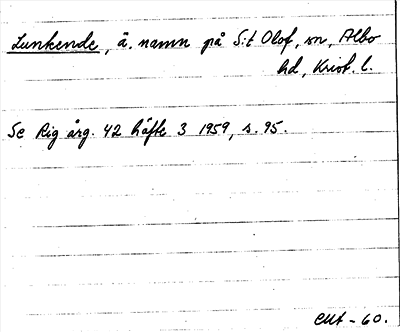 Lunkende, ä. namn på S:t Olof, sn, Albo
hd, Krist. l.
Se Rig årg. 42 häfte 3 1959, s. 95.
-60.